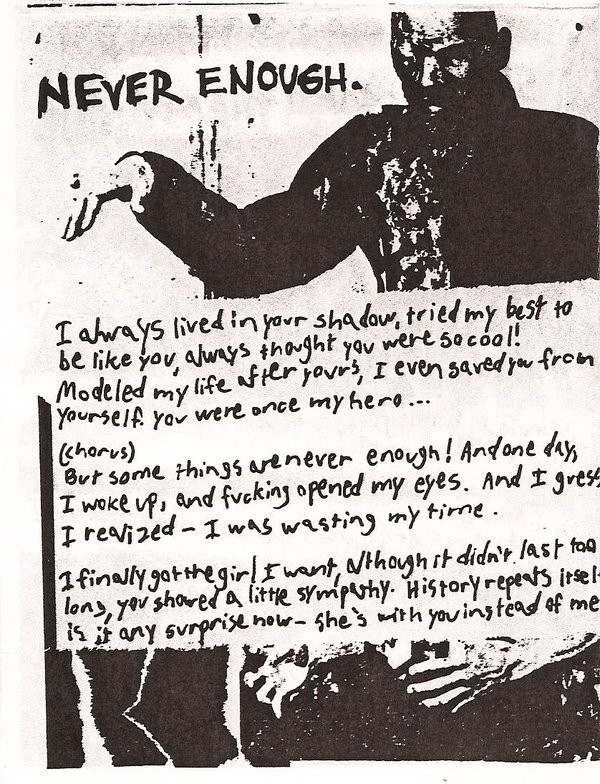 NEVER ENOUGH.
I always lived in your shadow, tried my best to
be like you, always thought you were so cool!
Modeled my life after yours, I even saved you from
yourself. you were once my hero ...
(chorus)
But some things are never enough! And one day,
I woke up, and fucking opened my eyes. And I guess
I realized - I was wasting my time.
I finally got the girl I want, although it didn't last too
long, you showed a little sympathy. History repeats itsel
is it any surprise now - she's with you instead of me